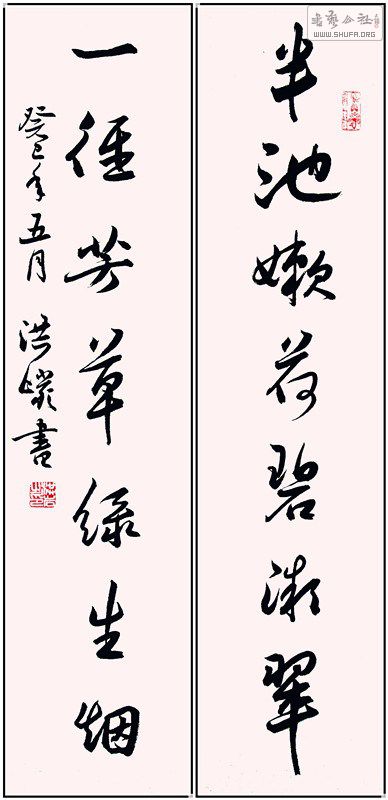 书艺公社
WWW.SHUFA.ORG
半池嫩荷碧凝翠
一径芳草绿生烟
癸巳年五月 洪書